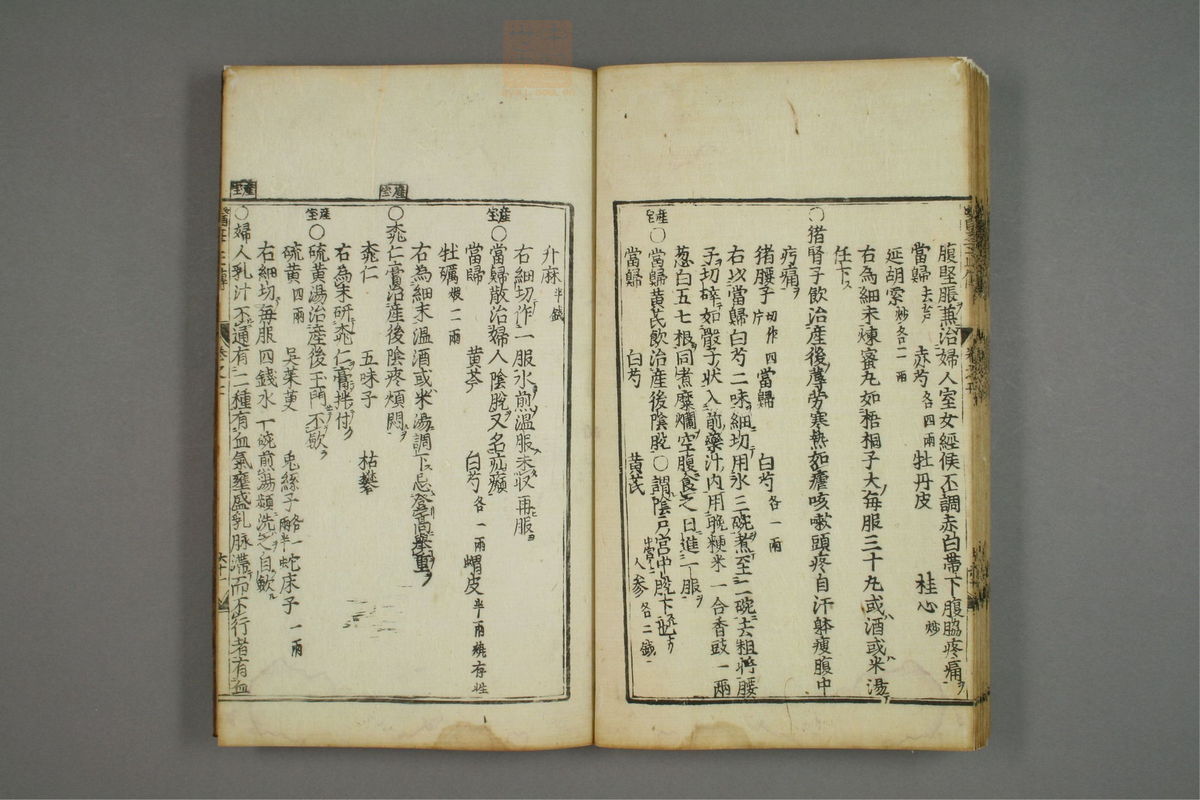 腹堅脹兼治婦人室女經候不調赤白帶下腹脇疼痛
當歸去芦 赤芍各四兩 牡丹皮 桂心炒
延胡索炒各二兩
右為細末煉蜜丸如梧桐子大每服三十丸或酒或米湯
任下
○猪腎子飲治產後蓐勞寒熱如瘧咳嗽頭疼自汗躰瘦腹中
㽱痛
猪腰子切作四片 當歸 白芍各一兩
右以當歸白芍二味細切用水三碗煮至二碗去粗將腰
子切碎如骰子狀入前藥汁內用晚粳米一合香豉一兩
葱白五七根同煮糜爛空腹食之日進一服
產宝○當歸黃芪飲治產後陰脫○謂陰戶宮中脫下也
當歸 白芍 黃芪 人參各二錢
升麻半錢
右細切作一服水煎溫服未收再服
產宝○當歸散治婦人陰脫又名㾏癩
當歸 黃芩 白芍各一兩 蝟皮半兩燒存性
牡礪煆一二兩
右為細末溫酒或米湯調下忌登高舉重
產宝
○桃仁膏治產後陰疼煩悶
桃仁 五味子 枯礬
右為末研桃仁膏拌付
產宝○硫黃湯治產後玉門不歛
硫黃四兩 吳茱萸 兎絲子各一兩半 蛇床子一兩
右細切每服四錢水一碗煎湯頻洗之自歛
產宝
○婦人乳汁不通有二種有血氣壅盛乳脉滯而不行者有血